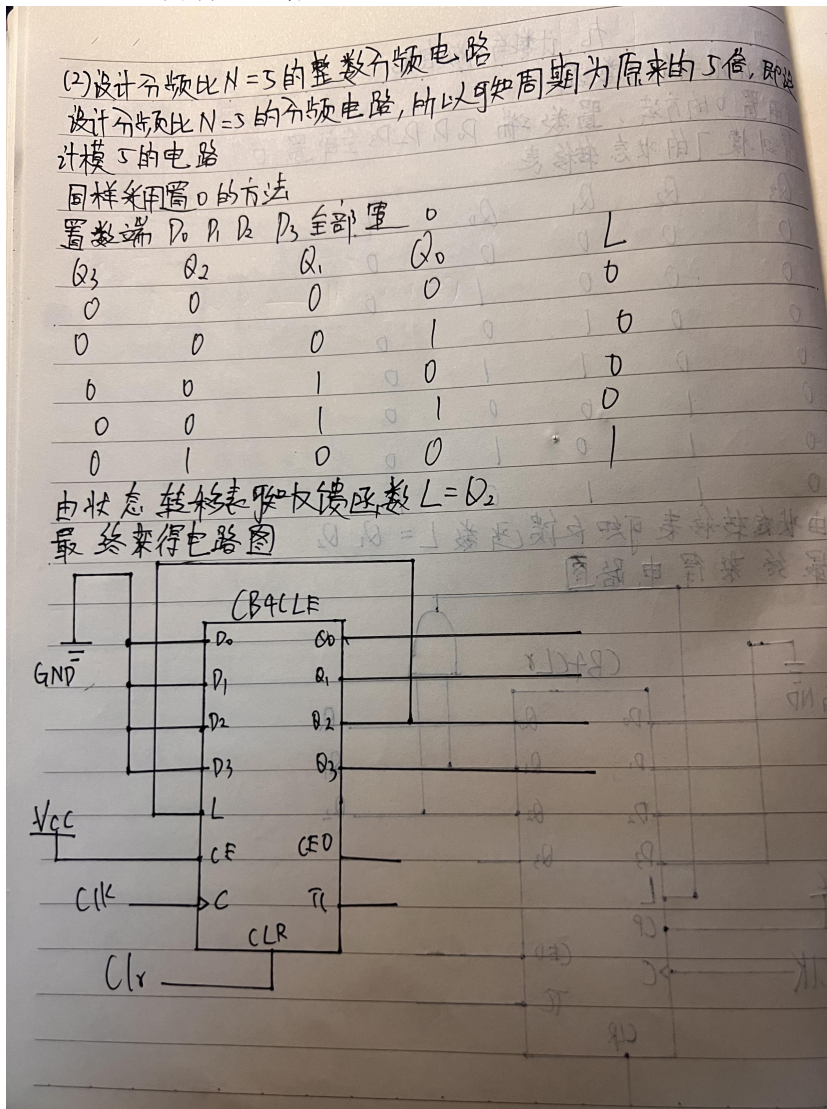 (2)设计分频比N=5的整数分频电路
设计分频比N=5的分频电路,所以可知周期为原来的5倍,即设
计模5的电路
同样采用置0的方法
置数端 D0 D1 D2 D3 全部置 0
Q3 Q2 Q1 Q0 L
0 0 0 0 0
0 0 0 1 0
0 0 1 0 0
0 0 1 1 0
0 1 0 0 1
由状态转移表可知反馈函数L=Q2
最终来得电路图
CB4CLE
GND
D0 Q0
D1 Q1
D2 Q2
D3 Q3
L
VCC
CE CEO
Clk C TC
CLR
Clr